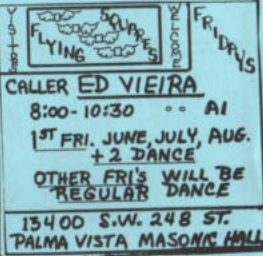 VISITORS
FLYING SQUARES
WELCOME
FRIDAYS
CALLER ED VIEIRA
8:00-10:30 A1
1ST FRI. JUNE, JULY, AUG.
+2 DANCE
OTHER FRI'S WILL BE
REGULAR DANCE
13400 S.W. 248 ST.
PALMA VISTA MASONIC HALL